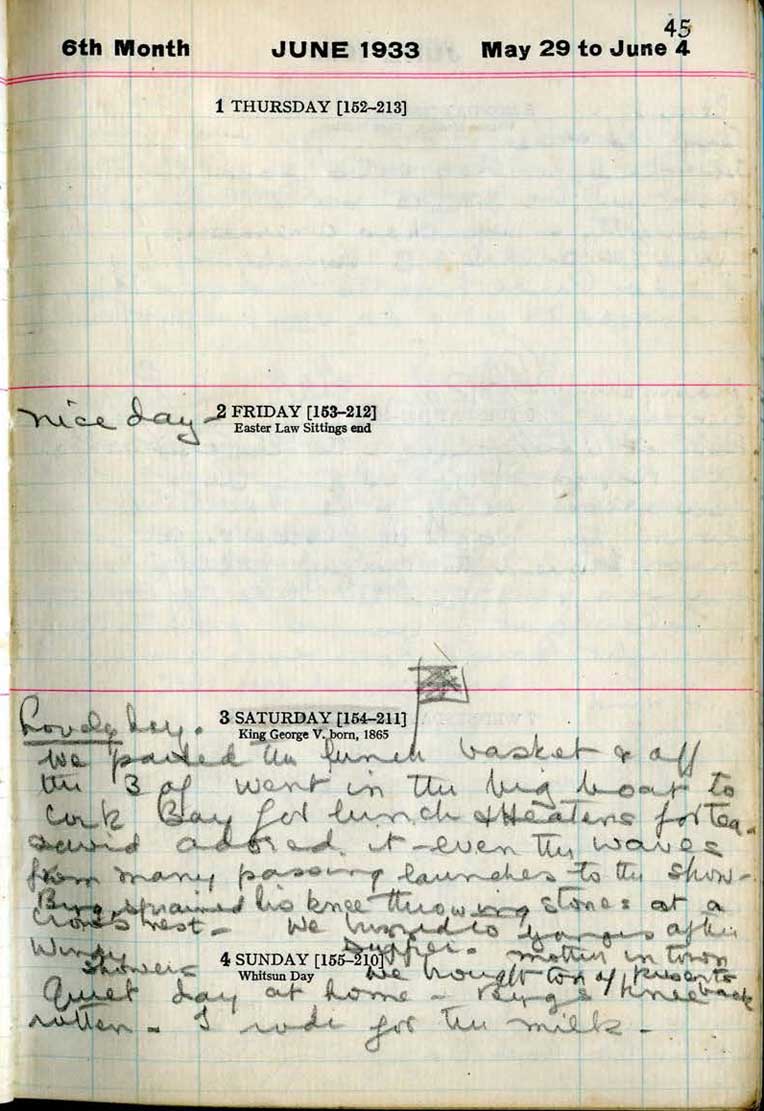 45
6th Month JUNE 1933 May 29 to June 4
1 THURSDAY [152–213]
nice day – 2 FRIDAY [153–212]
Easter Law Sittings end
Lovely day. 3 SATURDAY [154–211]
King George V. born, 1865
We packed the lunch basket & off
the 3 of went in the big boat to
Cork Bay for lunch & Heatens for tea.
David adored it – even the waves
from many passing launches to the show –
Byng sprained his knee throwing stones at a
crow's nest – We hurried to Youngs after
supper. mother in town
Windy showers 4 SUNDAY [155–210]
Whitsun Day
We brought ton of presents back
Quiet day at home – Byng's knee
rotten – I rode for the milk –